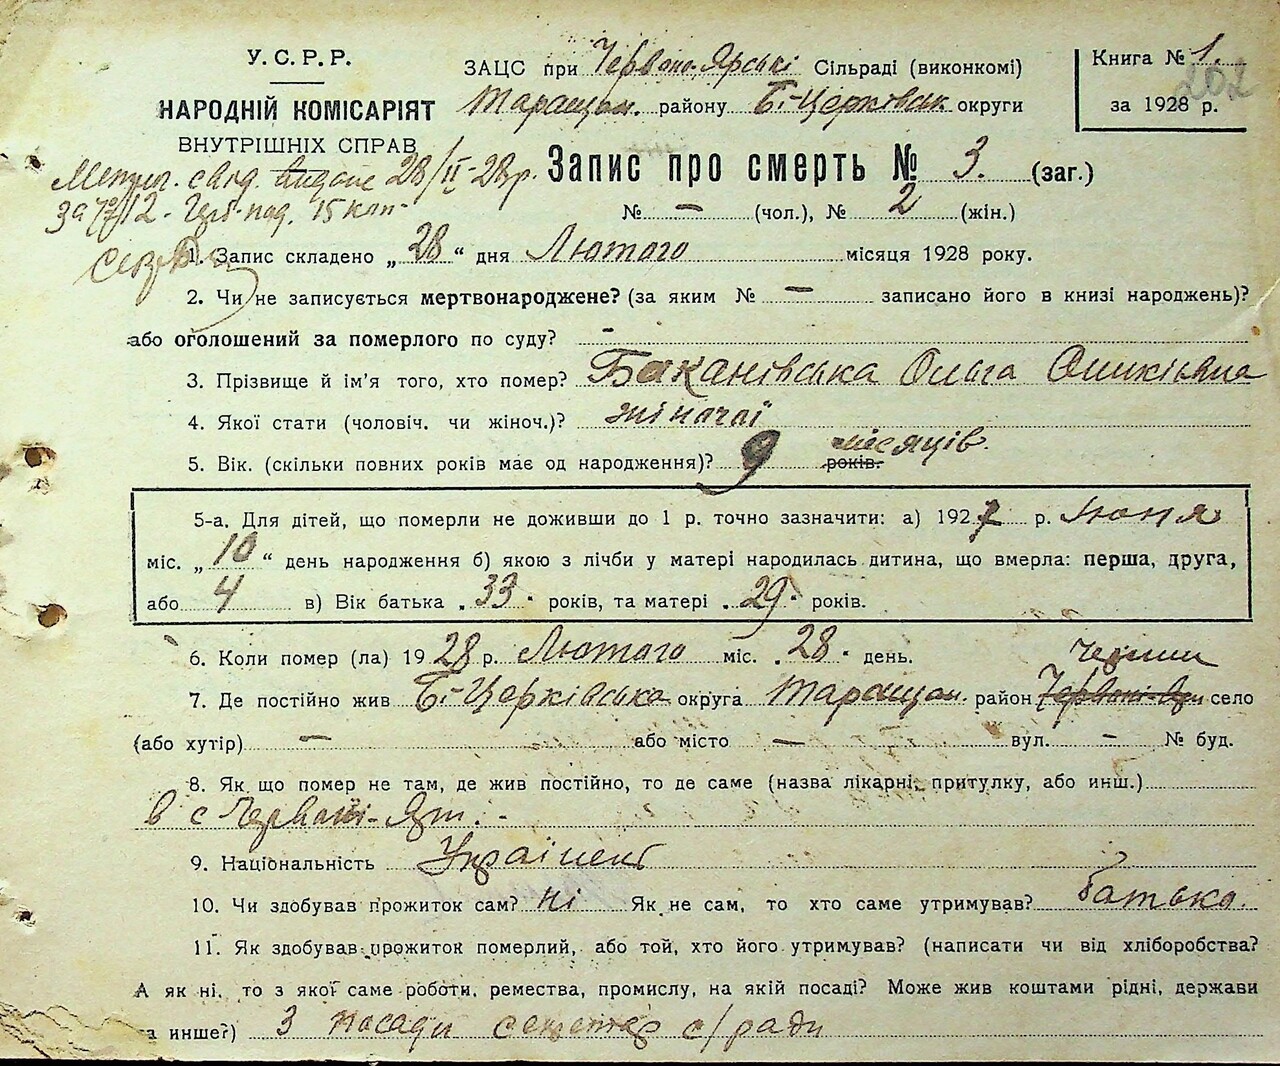 У. С. Р. Р.
НАРОДНІЙ КОМІСАРІЯТ
ВНУТРІШНІХ СПРАВ
ЗАЦС при Червоно-Ярські Сільраді (виконкомі)
Таращан. району Б-Церковськ округи
Книга № 1.
202
за 1928 р.
Метрич. свід. видане 28/II-28р.
15 коп.
Запис про смерть № 3. (заг.)
№ — (чол.), № 2 (жін.)
1. Запис складено „28“ дня Лютого місяця 1928 року.
2. Чи не записується мертвонароджене? (за яким № — записано його в книзі народжень)?
або оголошений за померлого по суду? -
3. Прізвище й ім'я того, хто помер? Бакановська Ольга
4. Якої стати (чоловіч. чи жіноч.)? жіночої
5. Вік. (скільки повних років має од народження)? 9 років. місяців.
5-а. Для дітей, що померли не доживши до 1 р. точно зазначити: а) 1927 р. Июня
міс. „10“ день народження б) якою з лічби у матері народилась дитина, що вмерла: перша, друга,
або 4 в) Вік батька „33“ років, та матері „29“ років.
6. Коли помер (ла) 1928 р. Лютого міс. „28“ день.
7. Де постійно жив Б-Церківська округа Таращан. район Червоні-Яри село
(або хутір) — або місто — вул. — № буд.
8. Як що помер не там, де жив постійно, то де саме (назва лікарні, притулку, або инш.)
в с Червоні-Яри. -
9. Національність Українець
10. Чи здобував прожиток сам? ні Як не сам, то хто саме утримував? батько.
11. Як здобував прожиток померлий, або той, хто його утримував? (написати чи від хліборобства?
А як ні, то з якої саме роботи, ремества, промислу, на якій посаді? Може жив коштами рідні, держави
та инше?) З посади секретар с/ради